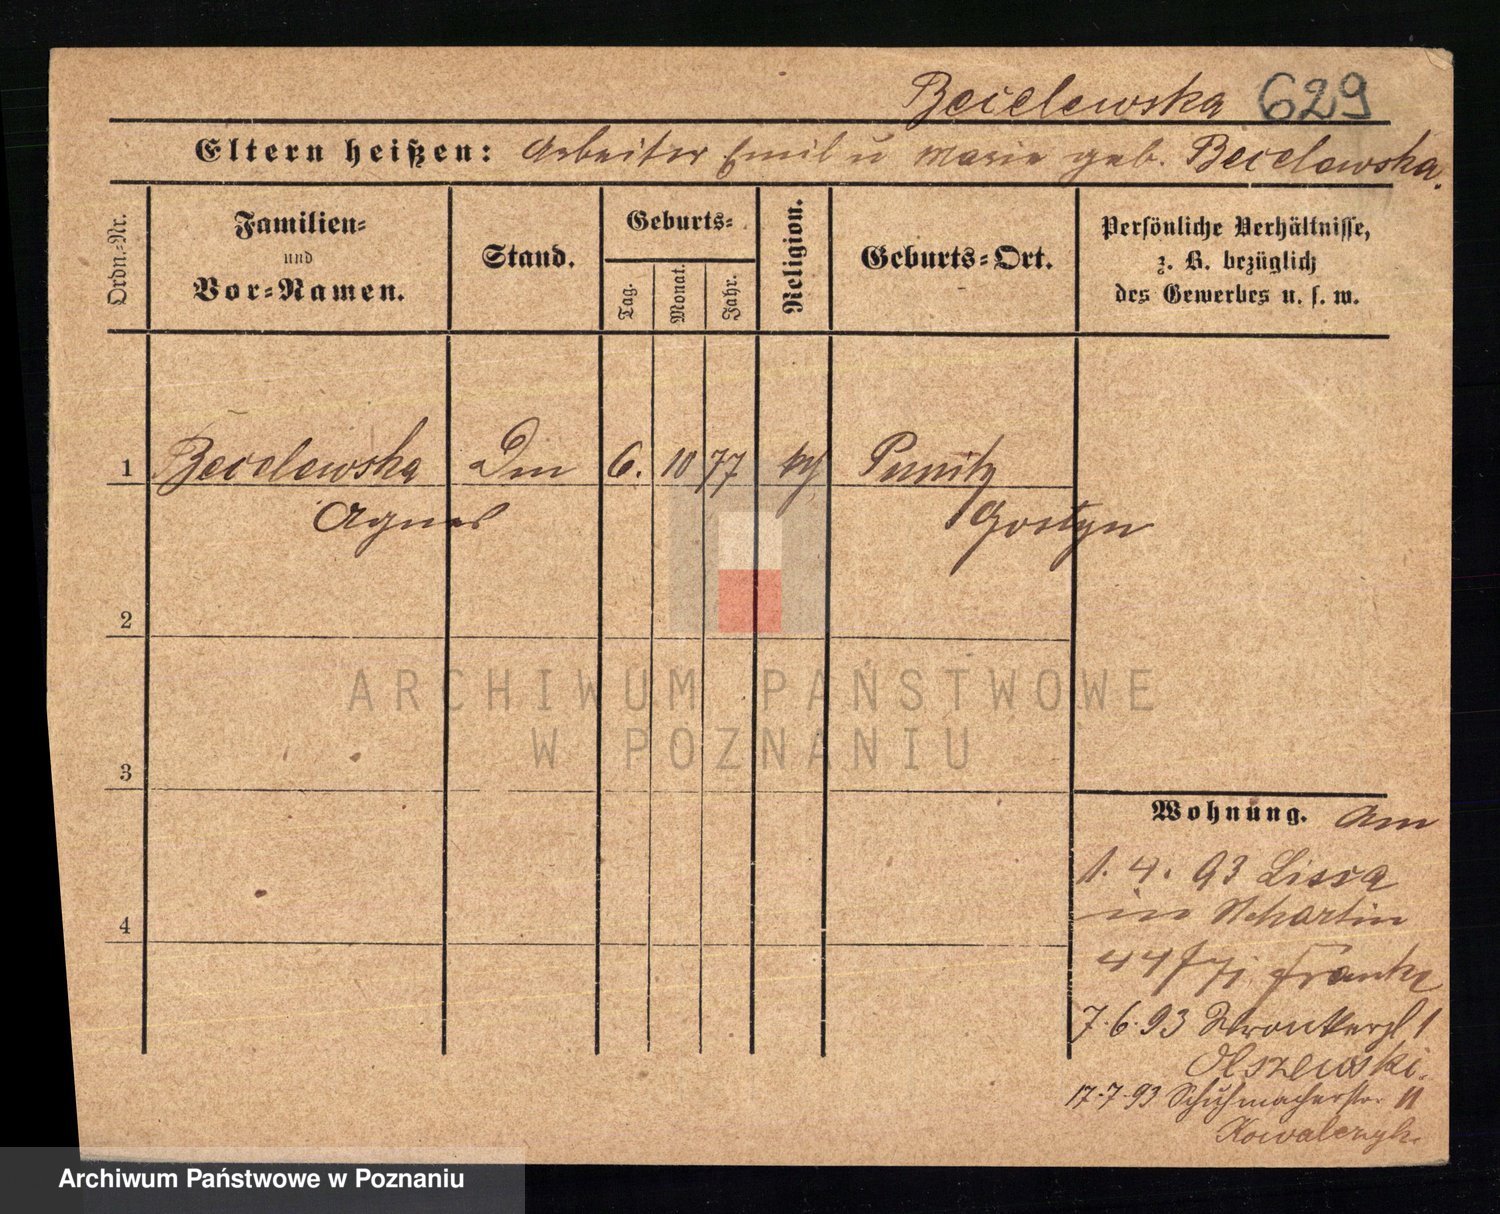 Becelewska 629
Eltern heißen: Arbeiter Emil u Marie geb. Becelewska.
Ordn.-Nr.
Familien-
und
Vor-Namen.
Stand.
Geburts-
Tag.
Monat.
Jahr.
Religion.
Geburts-Ort.
Persönliche Verhältnisse,
z. B. bezüglich
des Gewerbes u. s. w.
1 Becelewska 6. 10 77 Punitz
Agnes Gostyn
2
3
4
ARCHIWUM PAŃSTWOWE
W POZNANIU
Wohnung. Am
1. 4. 93 Lissa
in Martin
44 Franke
7.6.93 Wronkerpl 1
Olszewski.
17.7.93 Schuhmacherstr. 11
Kowalczyk.
Archiwum Państwowe w Poznaniu